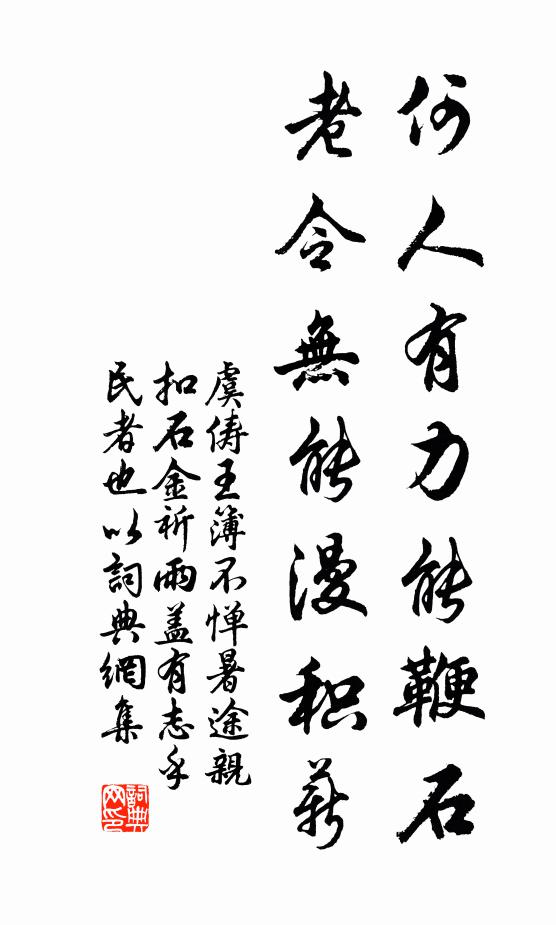 何人有力能鞭石
老令無能漫积薪
虞俦王簿不惮暑途親
扣石金祈雨盖有志乎
民者也以詞典網集
詞典网印